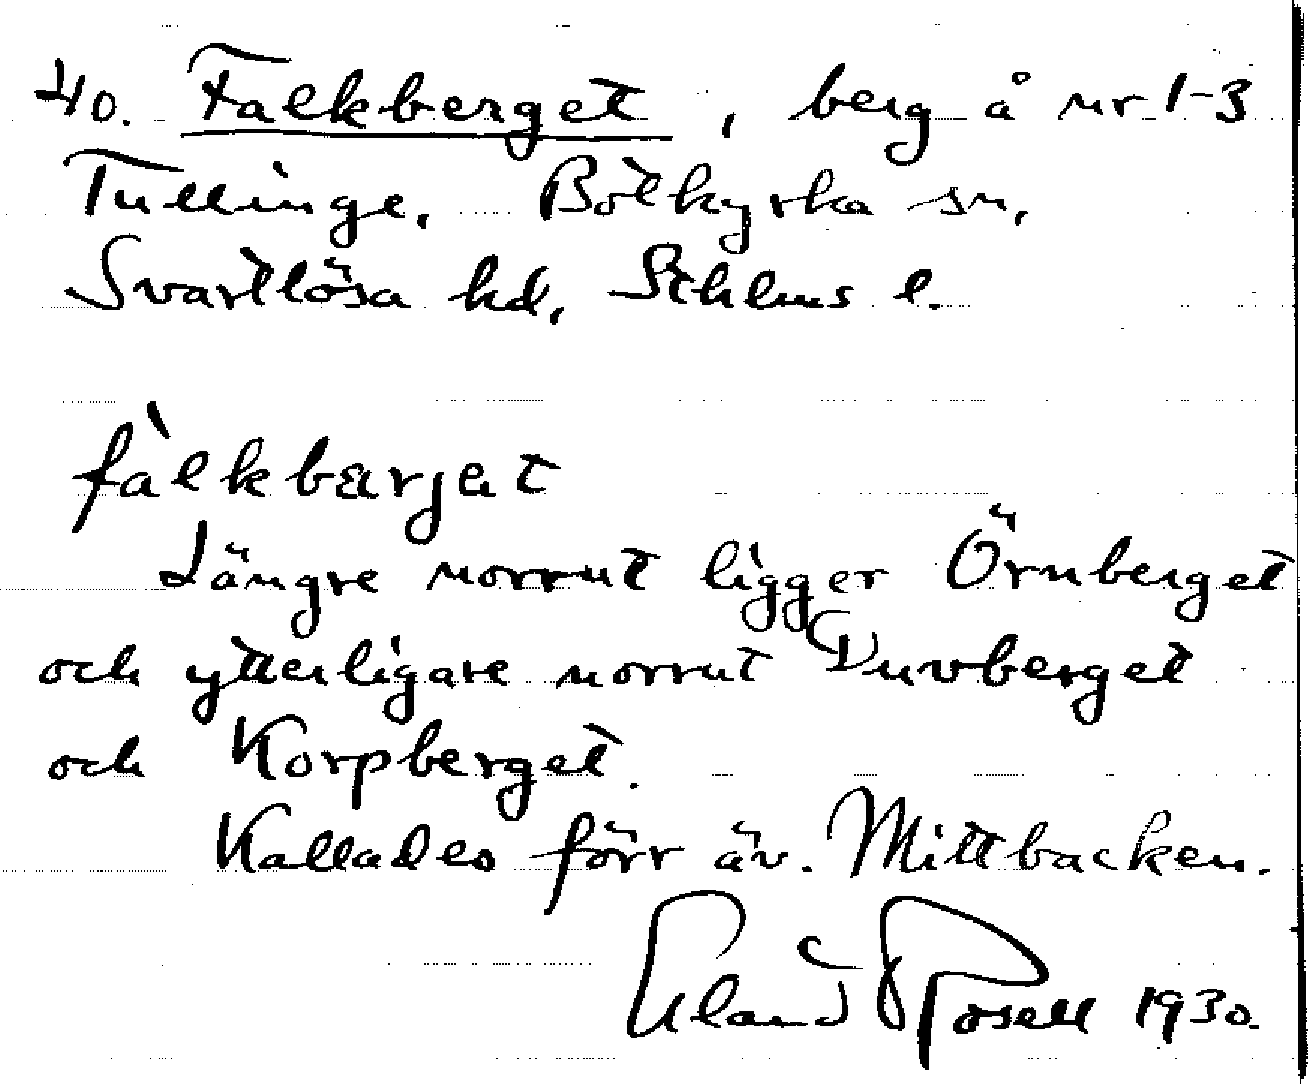 40. Falkberget, berg å nr 1-3
Tullinge. Botkyrka sn,
Svartlösa hd, Sthlms l.
fàlkbærjet
Längre norrut ligger Örnberget
och ytterligare norrut Duvberget
och Korpberget.
Kallades förr äv. Mittbacken.
Erland Rosell 1930.